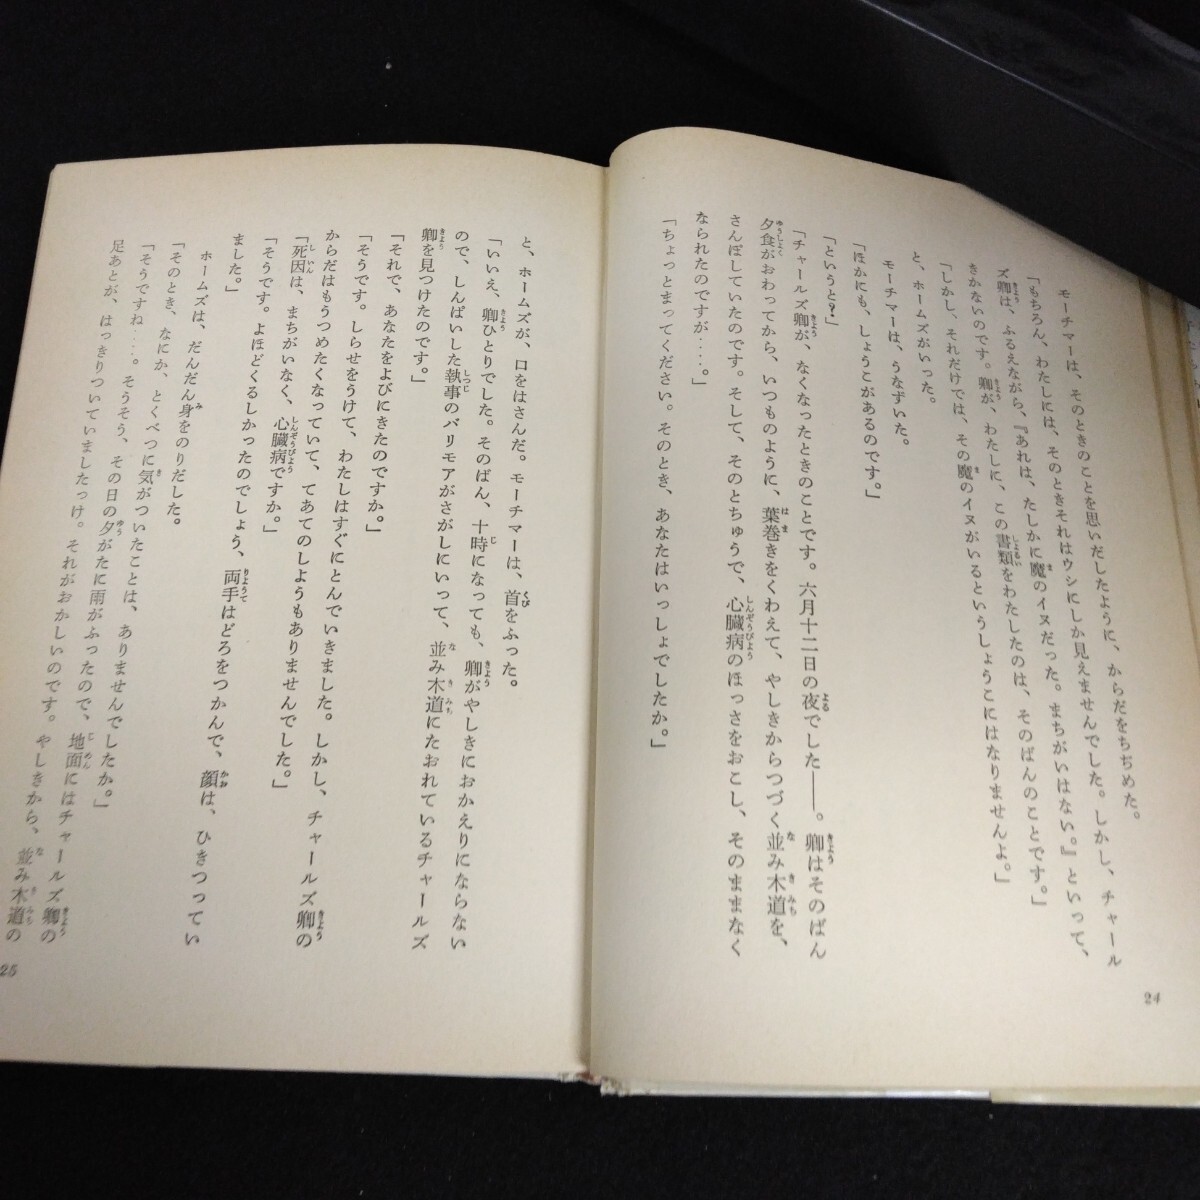 モーチマーは、そのときのことを思いだしたように、からだをちぢめた。
「もちろん、わたしには、そのときそれはウシにしか見えませんでした。しかし、チャール
ズ卿は、ふるえながら、『あれは、たしかに魔のイヌだった。まちがいはない。』といって、
きかないのです。卿が、わたしに、この書類をわたしたのは、そのばんのことです。」
「しかし、それだけでは、その魔のイヌがいるというしょうこにはなりませんよ。」
と、ホームズがいった。
モーチマーは、うなずいた。
「ほかにも、しょうこがあるのです。」
「というと?」
「チャールズ卿が、なくなったときのことです。六月十二日の夜でした――。卿はそのばん
夕食がおわってから、いつものように、葉巻きをくわえて、やしきからつづく並み木道を、
さんぽしていたのです。そして、そのとちゅうで、心臓病のほっさをおこし、そのままなく
なられたのですが‥‥。」
「ちょっとまってください。そのとき、あなたはいっしょでしたか。」
24
と、ホームズが、口をはさんだ。モーチマーは、首をふった。
「いいえ、卿ひとりでした。そのばん、十時になっても、卿がやしきにおかえりにならない
ので、しんぱいした執事のバリモアがさがしにいって、並み木道にたおれているチャールズ
卿を見つけたのです。」
「それで、あなたをよびにきたのですか。」
「そうです。しらせをうけて、わたしはすぐにとんでいきました。しかし、チャールズ卿の
からだはもうつめたくなっていて、てあてのしようもありませんでした。」
「死因は、まちがいなく、心臓病ですか。」
「そうです。よほどくるしかったのでしょう、両手はどろをつかんで、顔は、ひきつってい
ました。」
ホームズは、だんだん身をのりだした。
「そのとき、なにか、とくべつに気がついたことは、ありませんでしたか。」
「そうですね‥‥。そうそう、その日の夕がたに雨がふったので、地面にはチャールズ卿の
足あとが、はっきりついていましたっけ。それがおかしいのです。やしきから、並み木道の
25